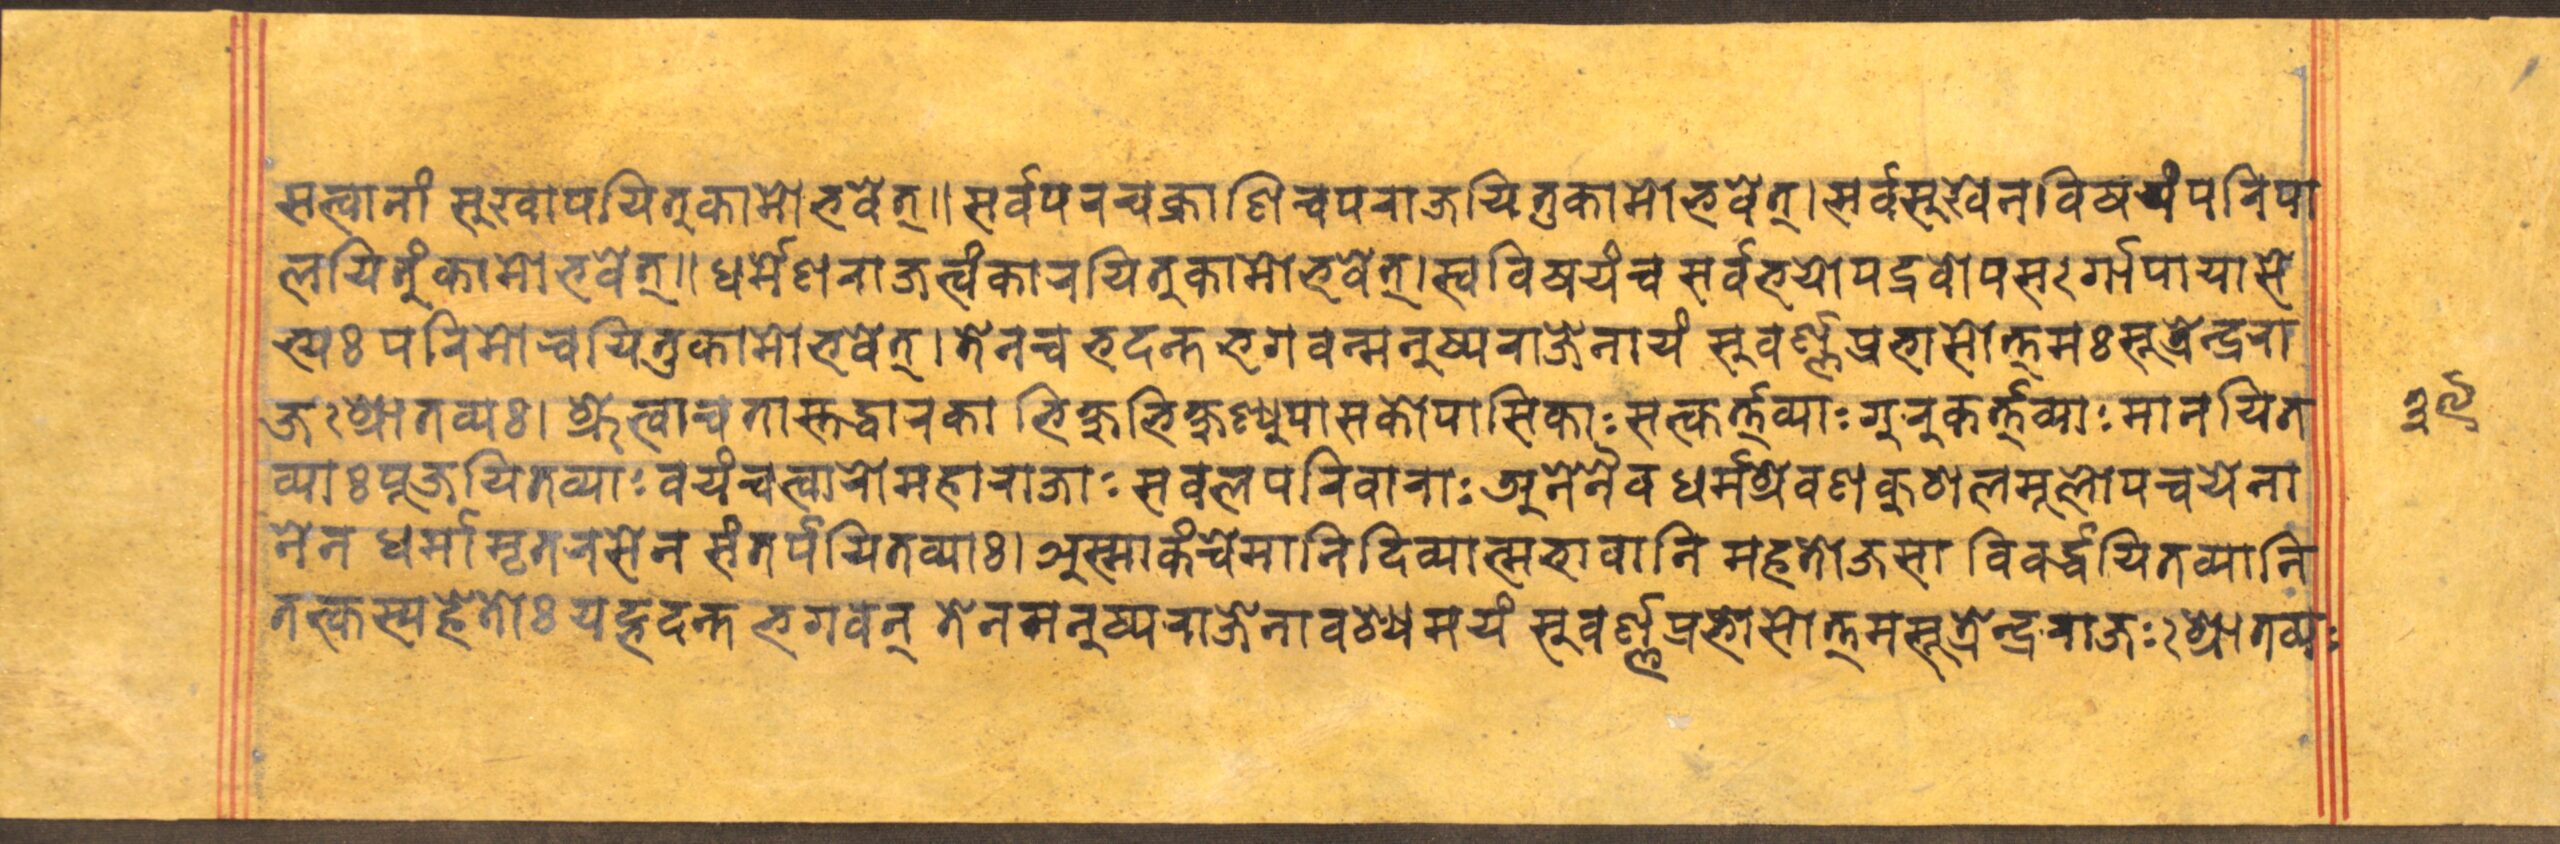 सत्वानां सुखापयितुकामो भवेत्॥सर्वपरचक्राणिचपराजयितुकामोभवेत्।सर्वसुखेनविषयंपरिपा
लयितुंकामोभवेत्॥धर्मेणराजत्वंकारयितुकामोभवेत्।स्वविषयंच सर्वभयोपद्रवोपसर्गोपायासे
भ्यः परिमोचयितुकामोभवेत्।तेनच भदन्त भगवन्मनुष्यराजेनायं सुवर्ण्णप्रभासोत्तमःसूत्रेन्द्ररा
जःश्रोतव्यः। श्रुत्वाचतास्तद्धारका भिक्षुभिक्षुण्युपासकोपासिकाःसत्कर्त्तव्याःगुरुकर्त्तव्याःमानयित
व्याःपूजयितव्याःवयंचत्वारोमहाराजाःसबलपरिवाराःअनेनैव धर्मश्रवणकुशलमूलोपचयेना
नेन धर्मामृतरसेन संतर्पयितव्याः।अस्माकंचेमानिदिव्यात्मभावानि महतोजसा विवर्द्धयितव्यानि
तत्कस्यहेतोः यद्भदन्त भगवन् तेनमनुष्यराजेनावश्यमयं सुवर्ण्णप्रभासोत्तमसूत्रेन्द्रराजःश्रोतव्यः
३९